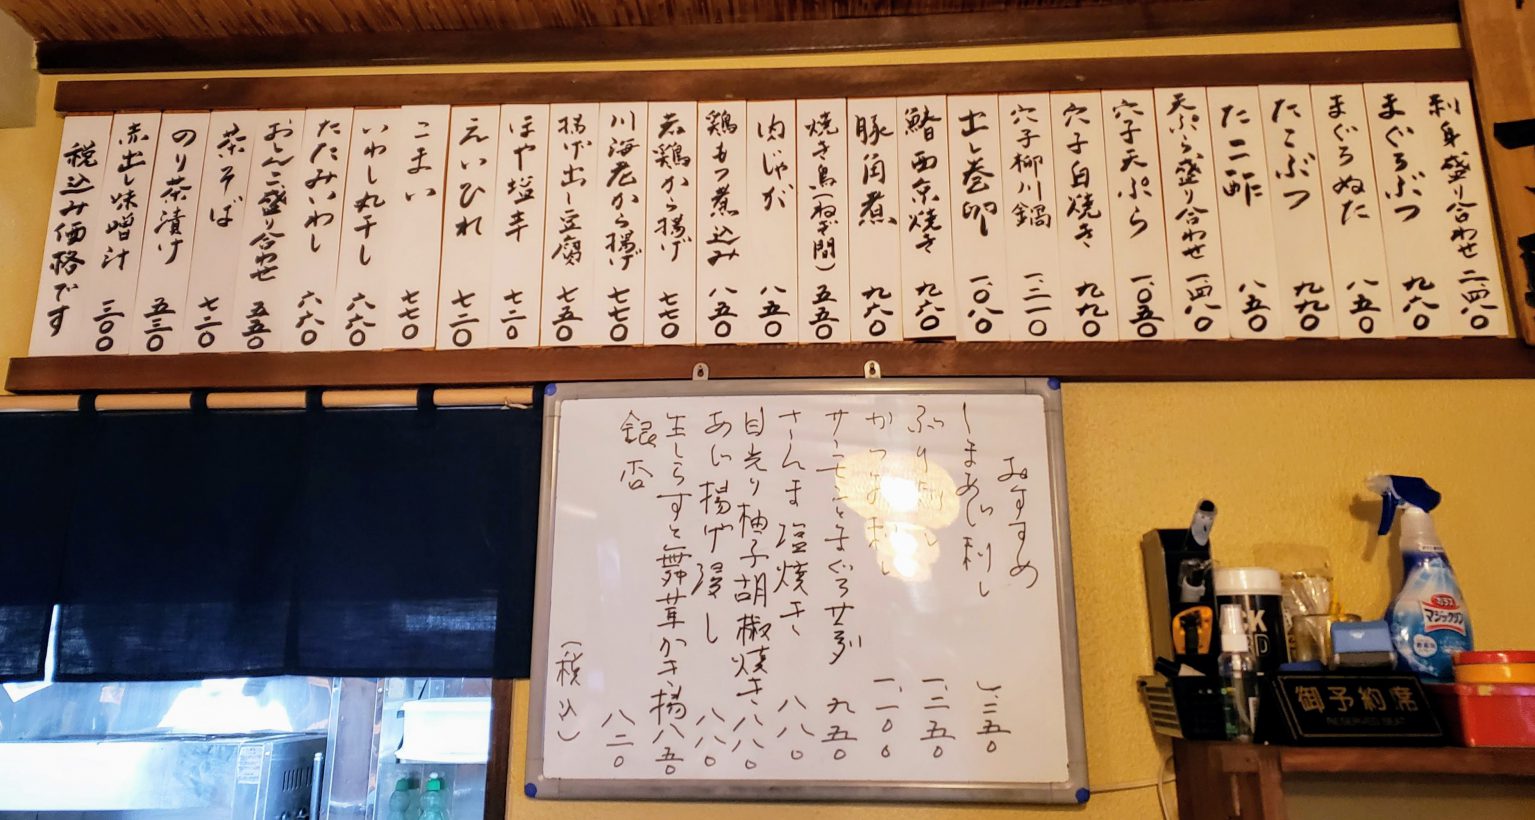 刺身盛り合わせ 二、四八〇
まぐろぶつ 九八〇
まぐろぬた 八五〇
たこぶつ 九九〇
たこ酢 八五〇
天ぷら盛り合わせ 一、四八〇
穴子天ぷら 一、〇五〇
穴子白焼き 九九〇
穴子柳川鍋 一、二一〇
出し巻卵 一、〇八〇
西京焼き 九六〇
豚角煮 九六〇
焼き鳥(ねぎ間) 五五〇
肉じゃが 八五〇
鶏もつ煮込み 八五〇
若鶏から揚げ 七七〇
川海老から揚げ 七七〇
揚げ出し豆腐 七五〇
ほや塩辛 七二〇
えいひれ 七二〇
こまい 七七〇
いわし丸干し 六六〇
たたみいわし 六六〇
おしんこ盛り合わせ 五五〇
茶そば 七二〇
のり茶漬け 五三〇
赤出し味噌汁 三〇〇
税込み価格です
おすすめ
しまあじ刺し 一、三五〇
ぶり刺し 一、二五〇
かつお刺し 一、一〇〇
サーモンとまぐろせ 九五〇
さんま塩焼き 八八〇
目光り柚子胡椒焼き 八八〇
あじ揚げ浸し 八八〇
生しらすと舞茸かき揚 八五〇
銀杏 八二〇
(税込)
ガラス
マジックリン
御予約席
RESERVED SEAT